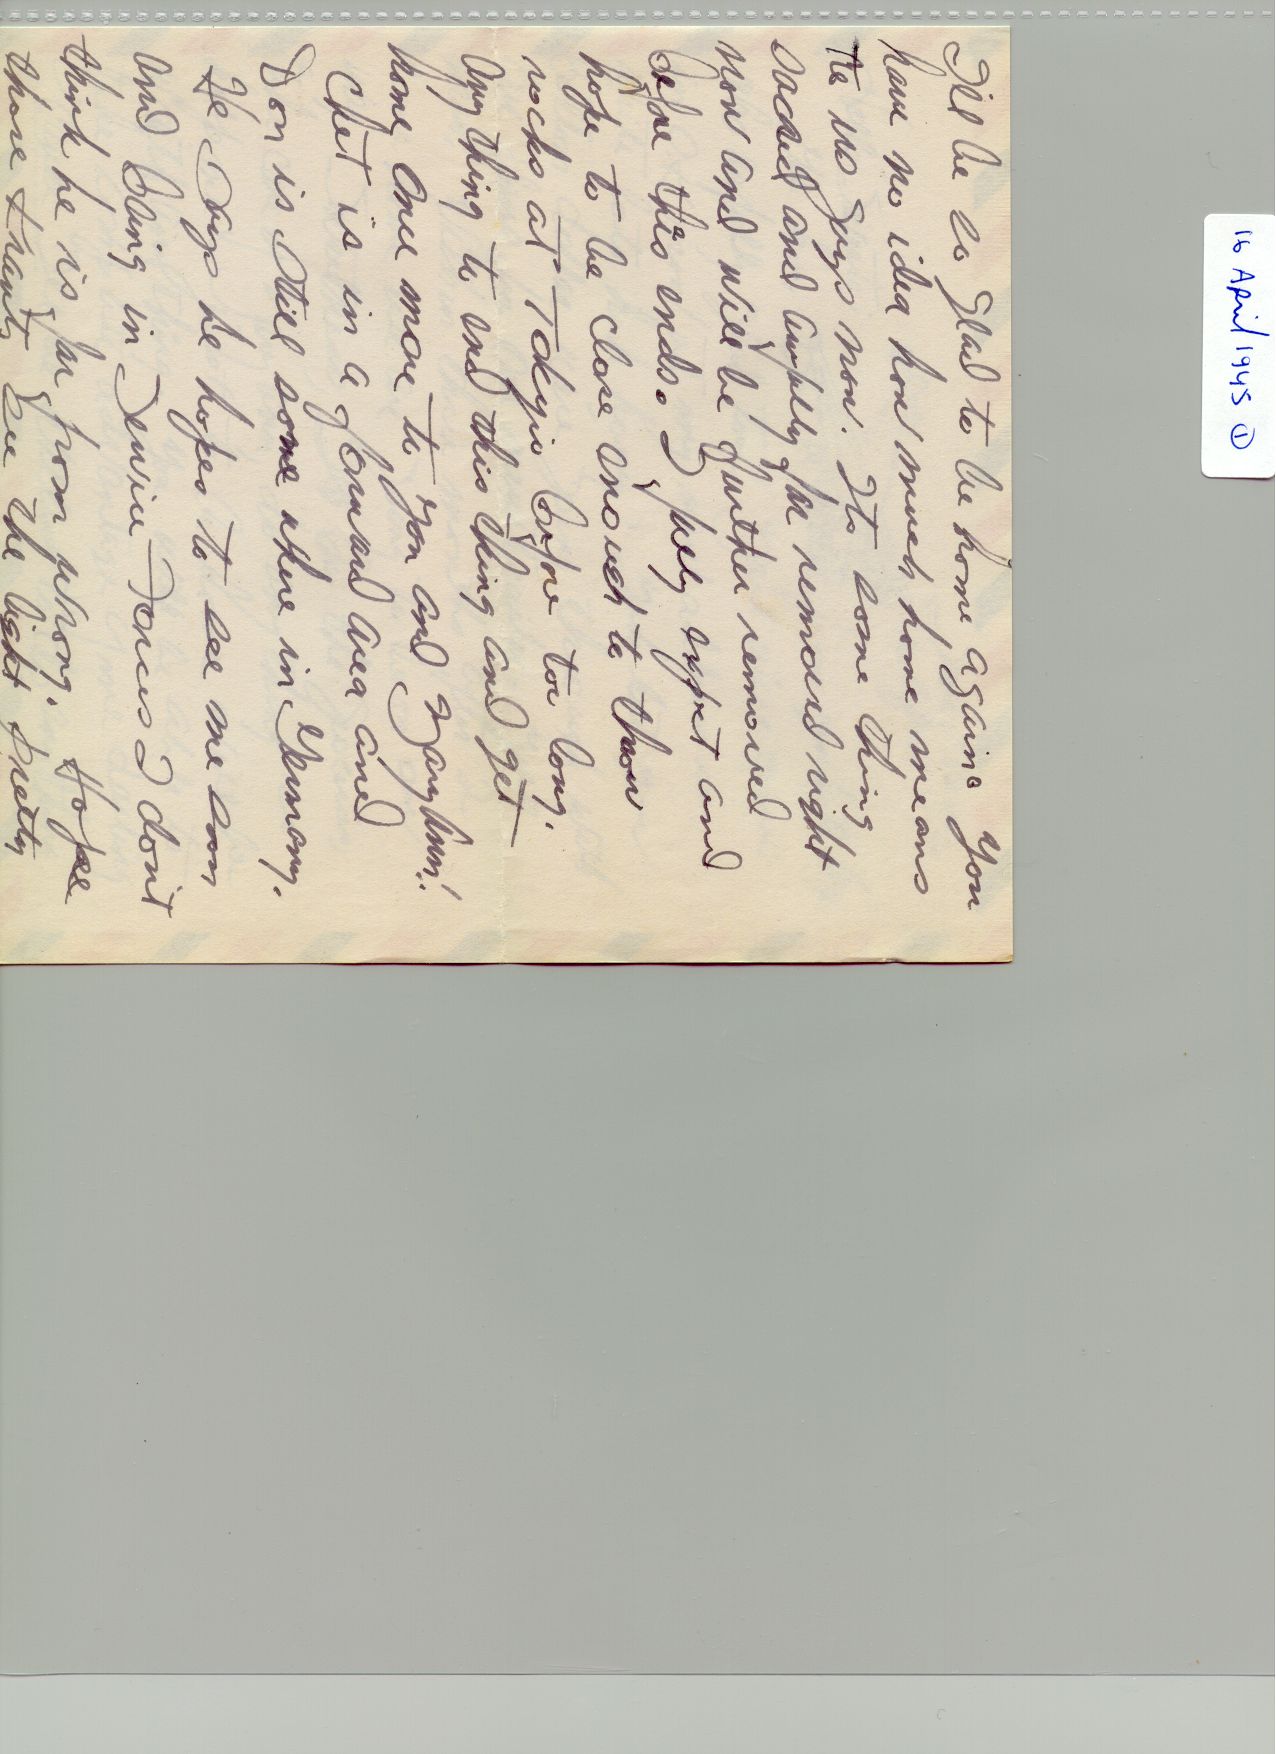 16 April 1945 ①
I'll be so glad to be home again. You
have no idea how much home means
to us guys now. Its some thing
sacred and awfully far removed right
now and will be further removed
before this ends. I fully expect and
hope to be close enough to throw
rocks at Tokyio before too long.
Any thing to end this thing and get
home once more to you and Mary Ann!!
Chet is in a forward area and
Don is still some where in Germany.
He says he hopes to see me soon
and being in Service Forces I don't
think he is far from wrong. Hope
those Krauts see the light pretty